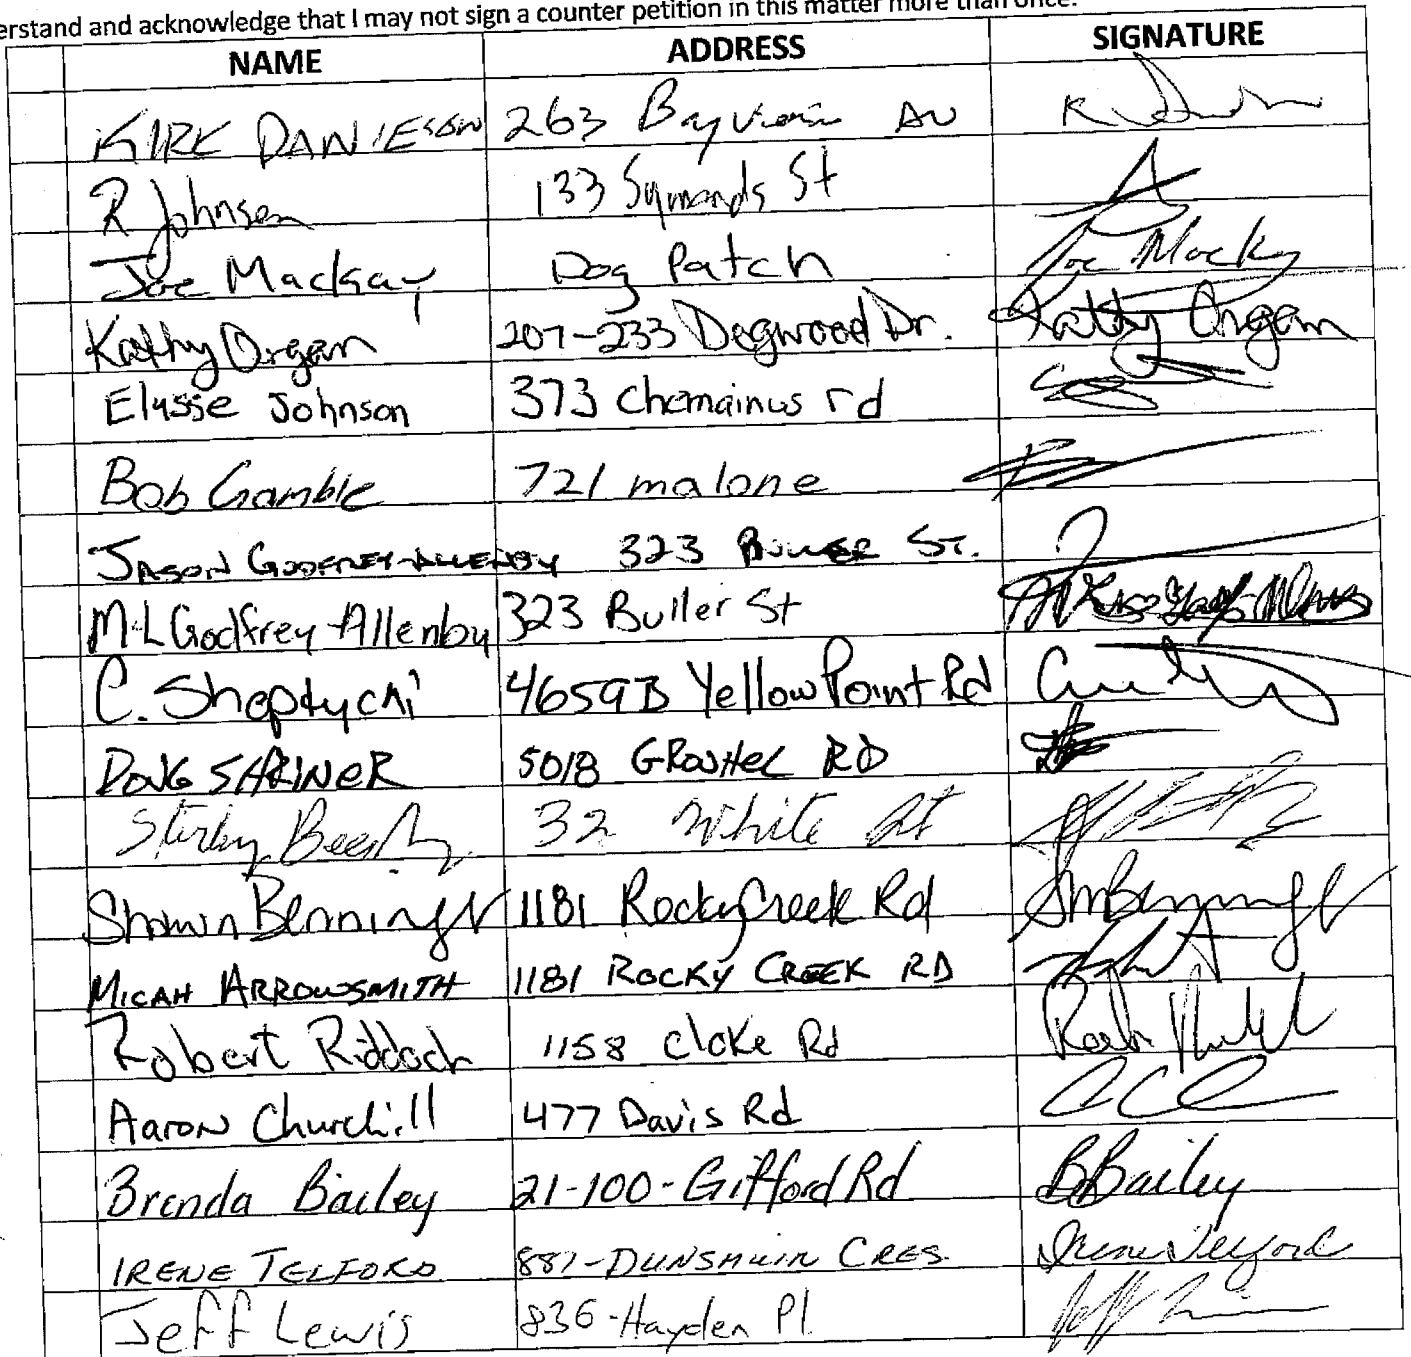 erstand and acknowledge that I may not sign a counter petition in this matter more than once.
NAME ADDRESS SIGNATURE
KIRK DANIELSON 263 Bayview AV K
R Johnsen 133 Symonds St
Joe Mackay Dog Patch Joe Mackay
Kathy Organ 207-233 Dogwood Dr. Kathy Organ
Elysse Johnson 373 Chemainus rd
Bob Gamble 721 malone
JASON GODFREY-ALLENBY 323 BULLER ST.
M-L Godfrey-Allenby 323 Buller St
C. Sheptycki 4659B Yellow Point Rd
DOUG SHRINER 5018 GROUHEL RD
32 White St
Shawn Benning 1181 Rocky Creek Rd
MICAH ARROWSMITH 1181 ROCKY CREEK RD
Robert Riddoch 1158 Cloke Rd
Aaron Churchill 477 Davis Rd
Brenda Bailey 21-100-Gifford Rd BBailey
IRENE TELFORD 881-DUNSMUIR CRES. Irene Telford
Jeff Lewis 836-Hayden Pl.